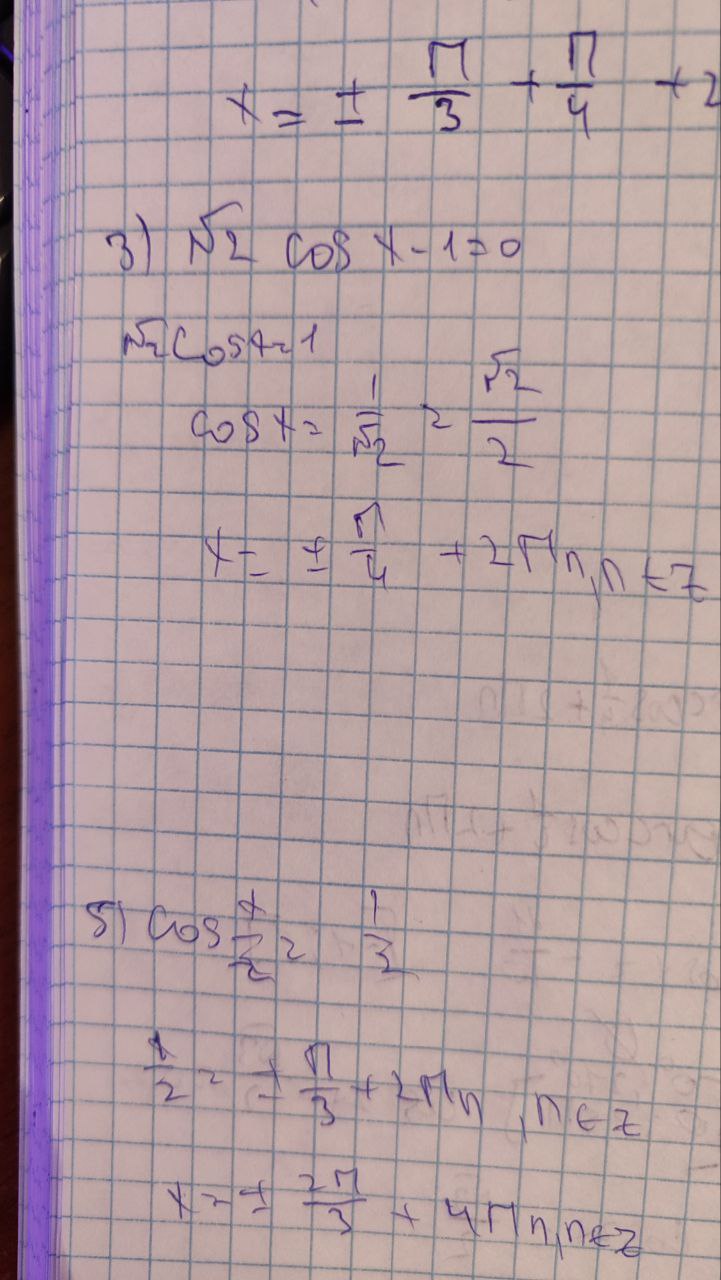 x = ± П/3 + П/4 + 2
3) √2 cos x - 1 = 0
√2 cos x = 1
cos x = 1/√2 = √2/2
x = ± П/4 + 2Пn, n ∈ Z
5) cos x/2 = 1/2
x/2 = ± П/3 + 2Пn, n ∈ Z
x = ± 2П/3 + 4Пn, n ∈ Z